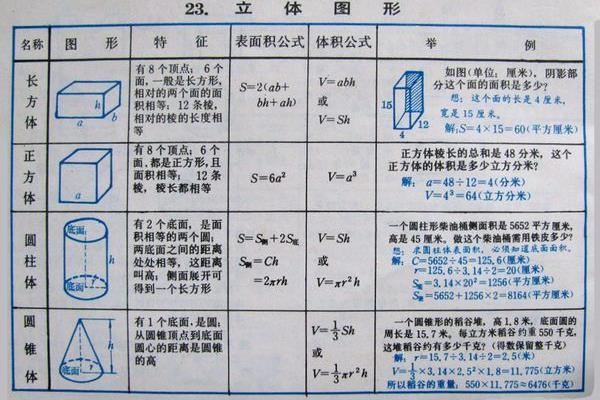 23. 立体图形
名称 图形 特征 表面积公式 体积公式 举例
长方体
a b h
有8个顶点; 6个
面, 一般是长方形,
相对的两个面的面
积相等; 12条棱,
相对的棱的长度相
等
S=2(ab+
bh+ah)
V=abh
或
V=Sh
15 4 12
如图(单位: 厘米), 阴影部
分这个面的面积是多少?
想: 这个面的长是4厘米,
宽是15厘米。
解:S=4×15=60(平方厘米)
正方体
a
有8个顶点; 6个
面,都是正方形,且
面积相等; 12条
棱, 棱长都相等
S=6a²
V=a³
正方体棱长的总和是48分米, 这个
正方体的体积是多少立方分米?
解: a=48÷12=4(分米)
V=4³=64(立方分米)
圆柱体
底面 h 底面 r
有2个底面, 是面
积相等的两个圆;
两底面之间的距离
处处相等, 这距离
叫高; 侧面展开可
得到一个长方形
S=S侧+2S底
S侧=Ch
=2πrh
V=Sh
或
V=πr²h
一个圆柱形柴油桶侧面积是5652平方厘米,
高是45厘米。做这个柴油桶需用铁皮多少?
想: 求圆柱体表面积, 必须知道底面面积。
解: C=5652÷45=125.6(厘米)
r=125.6÷3.14÷2=20(厘米)
S底=3.14×20²=1256(平方厘米)
S表=5652+1256×2=8164(平方厘米)
圆锥体
h 底面 r
有1个底面,是圆;
从圆锥顶点到底面
圆心的距离是圆锥
的高
V=1/3Sh
或
V=1/3πr²h
一个圆锥形的稻谷堆, 高1.8米, 底面圆的
周长是15.7米。每立方米稻谷约重550千克,
这堆稻谷约有多少千克? (得数保留整千克)
解: r=15.7÷3.14÷2=2.5(米)
V=1/3×3.14×2.5²×1.8=11.775(立方米)
所以稻谷的重量: 550×11.775≈6476(千克)